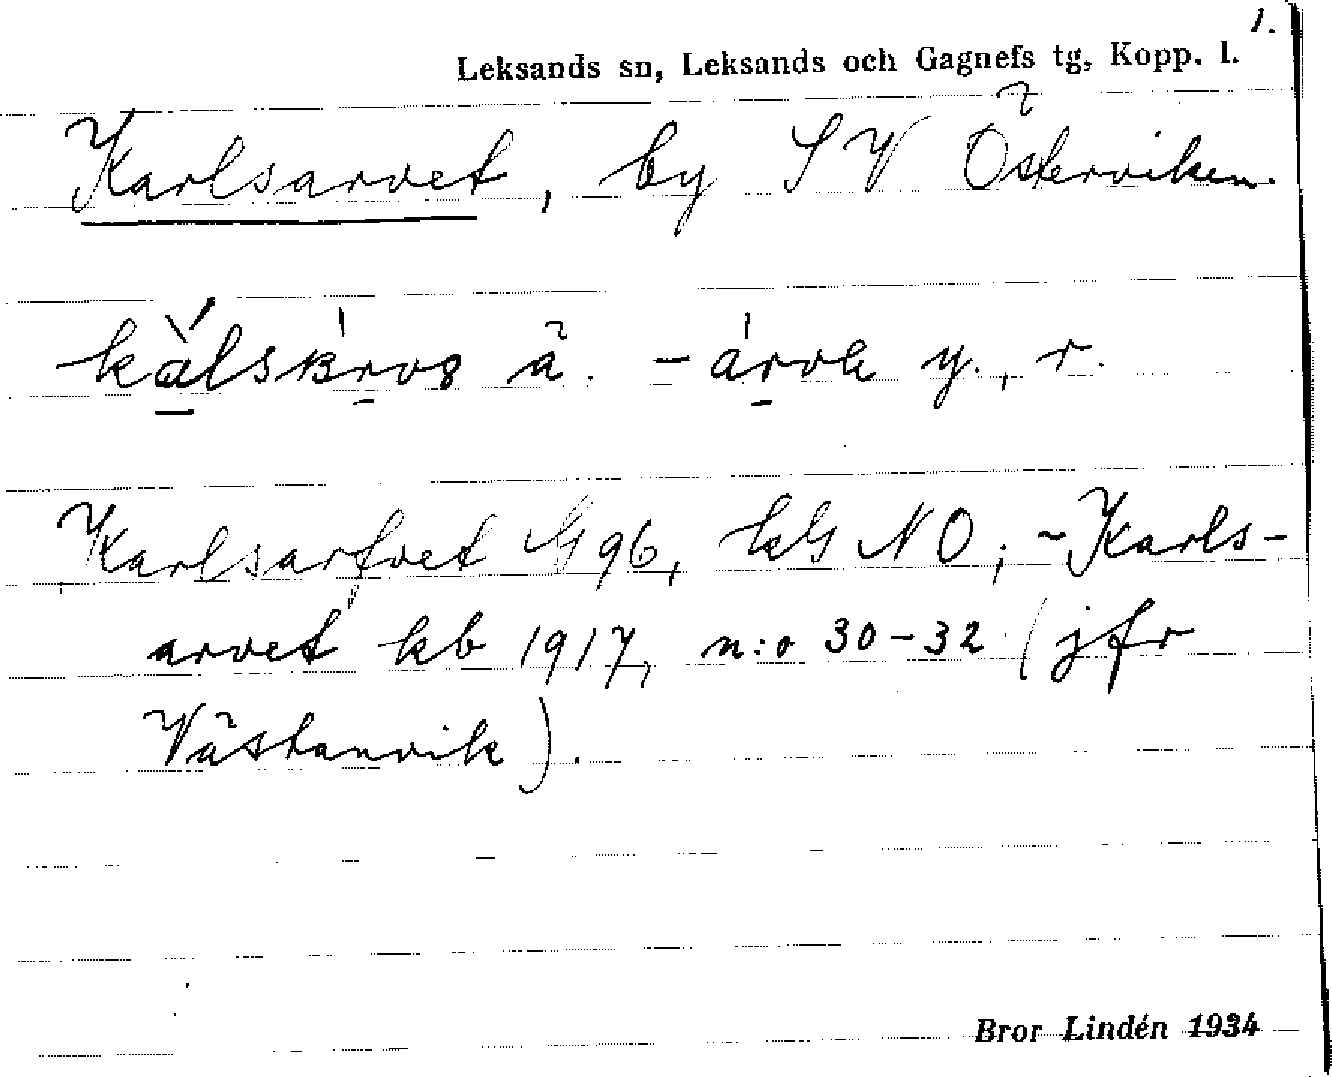 1.
Leksands sn, Leksands och Gagnefs tg, Kopp. l.
Karlsarvet, by S V Österviken.
ä. y., r.
Karlsarfvet G 96, NO; - Karls-
arvet kb 1917, n:o 30-32 (jfr
Västanvik).
Bror Lindén 1934